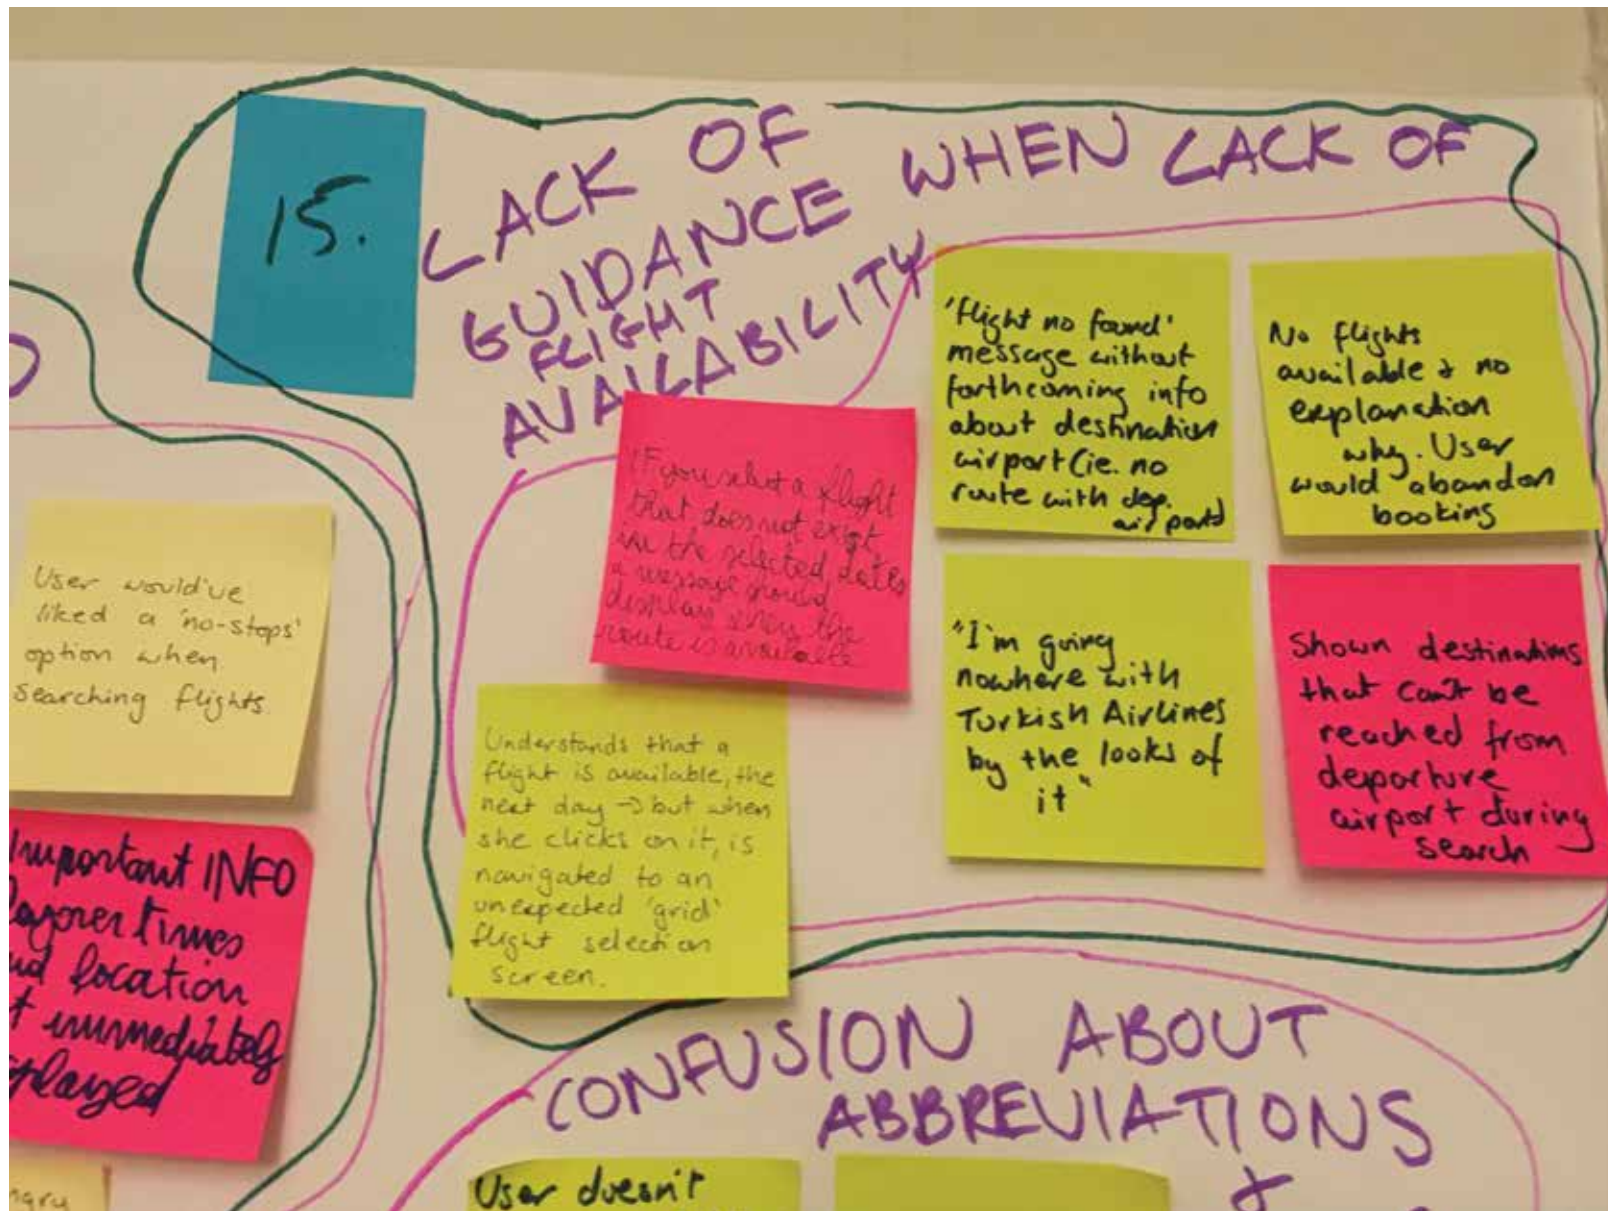 15.
LACK OF
GUIDANCE WHEN LACK OF
FLIGHT
AVAILABILITY
'flight no found'
message without
forthcoming info
about destination
airport (ie. no
route with dep.
airport)
No flights
available & no
explanation
why. User
would abandon
booking
IF you select a flight
that does not exist
in the selected dates
a message should
display when the
route is available
"I'm going
nowhere with
Turkish Airlines
by the looks of
it"
Shown destinations
that can't be
reached from
departure
airport during
search
Understands that a
flight is available, the
next day → but when
she clicks on it, is
navigated to an
unexpected 'grid'
flight selection
screen.
User would've
liked a 'no-stops'
option when
searching flights.
Important INFO
layover times
location
immediately
CONFUSION ABOUT
ABBREVIATIONS
&
User doesn't